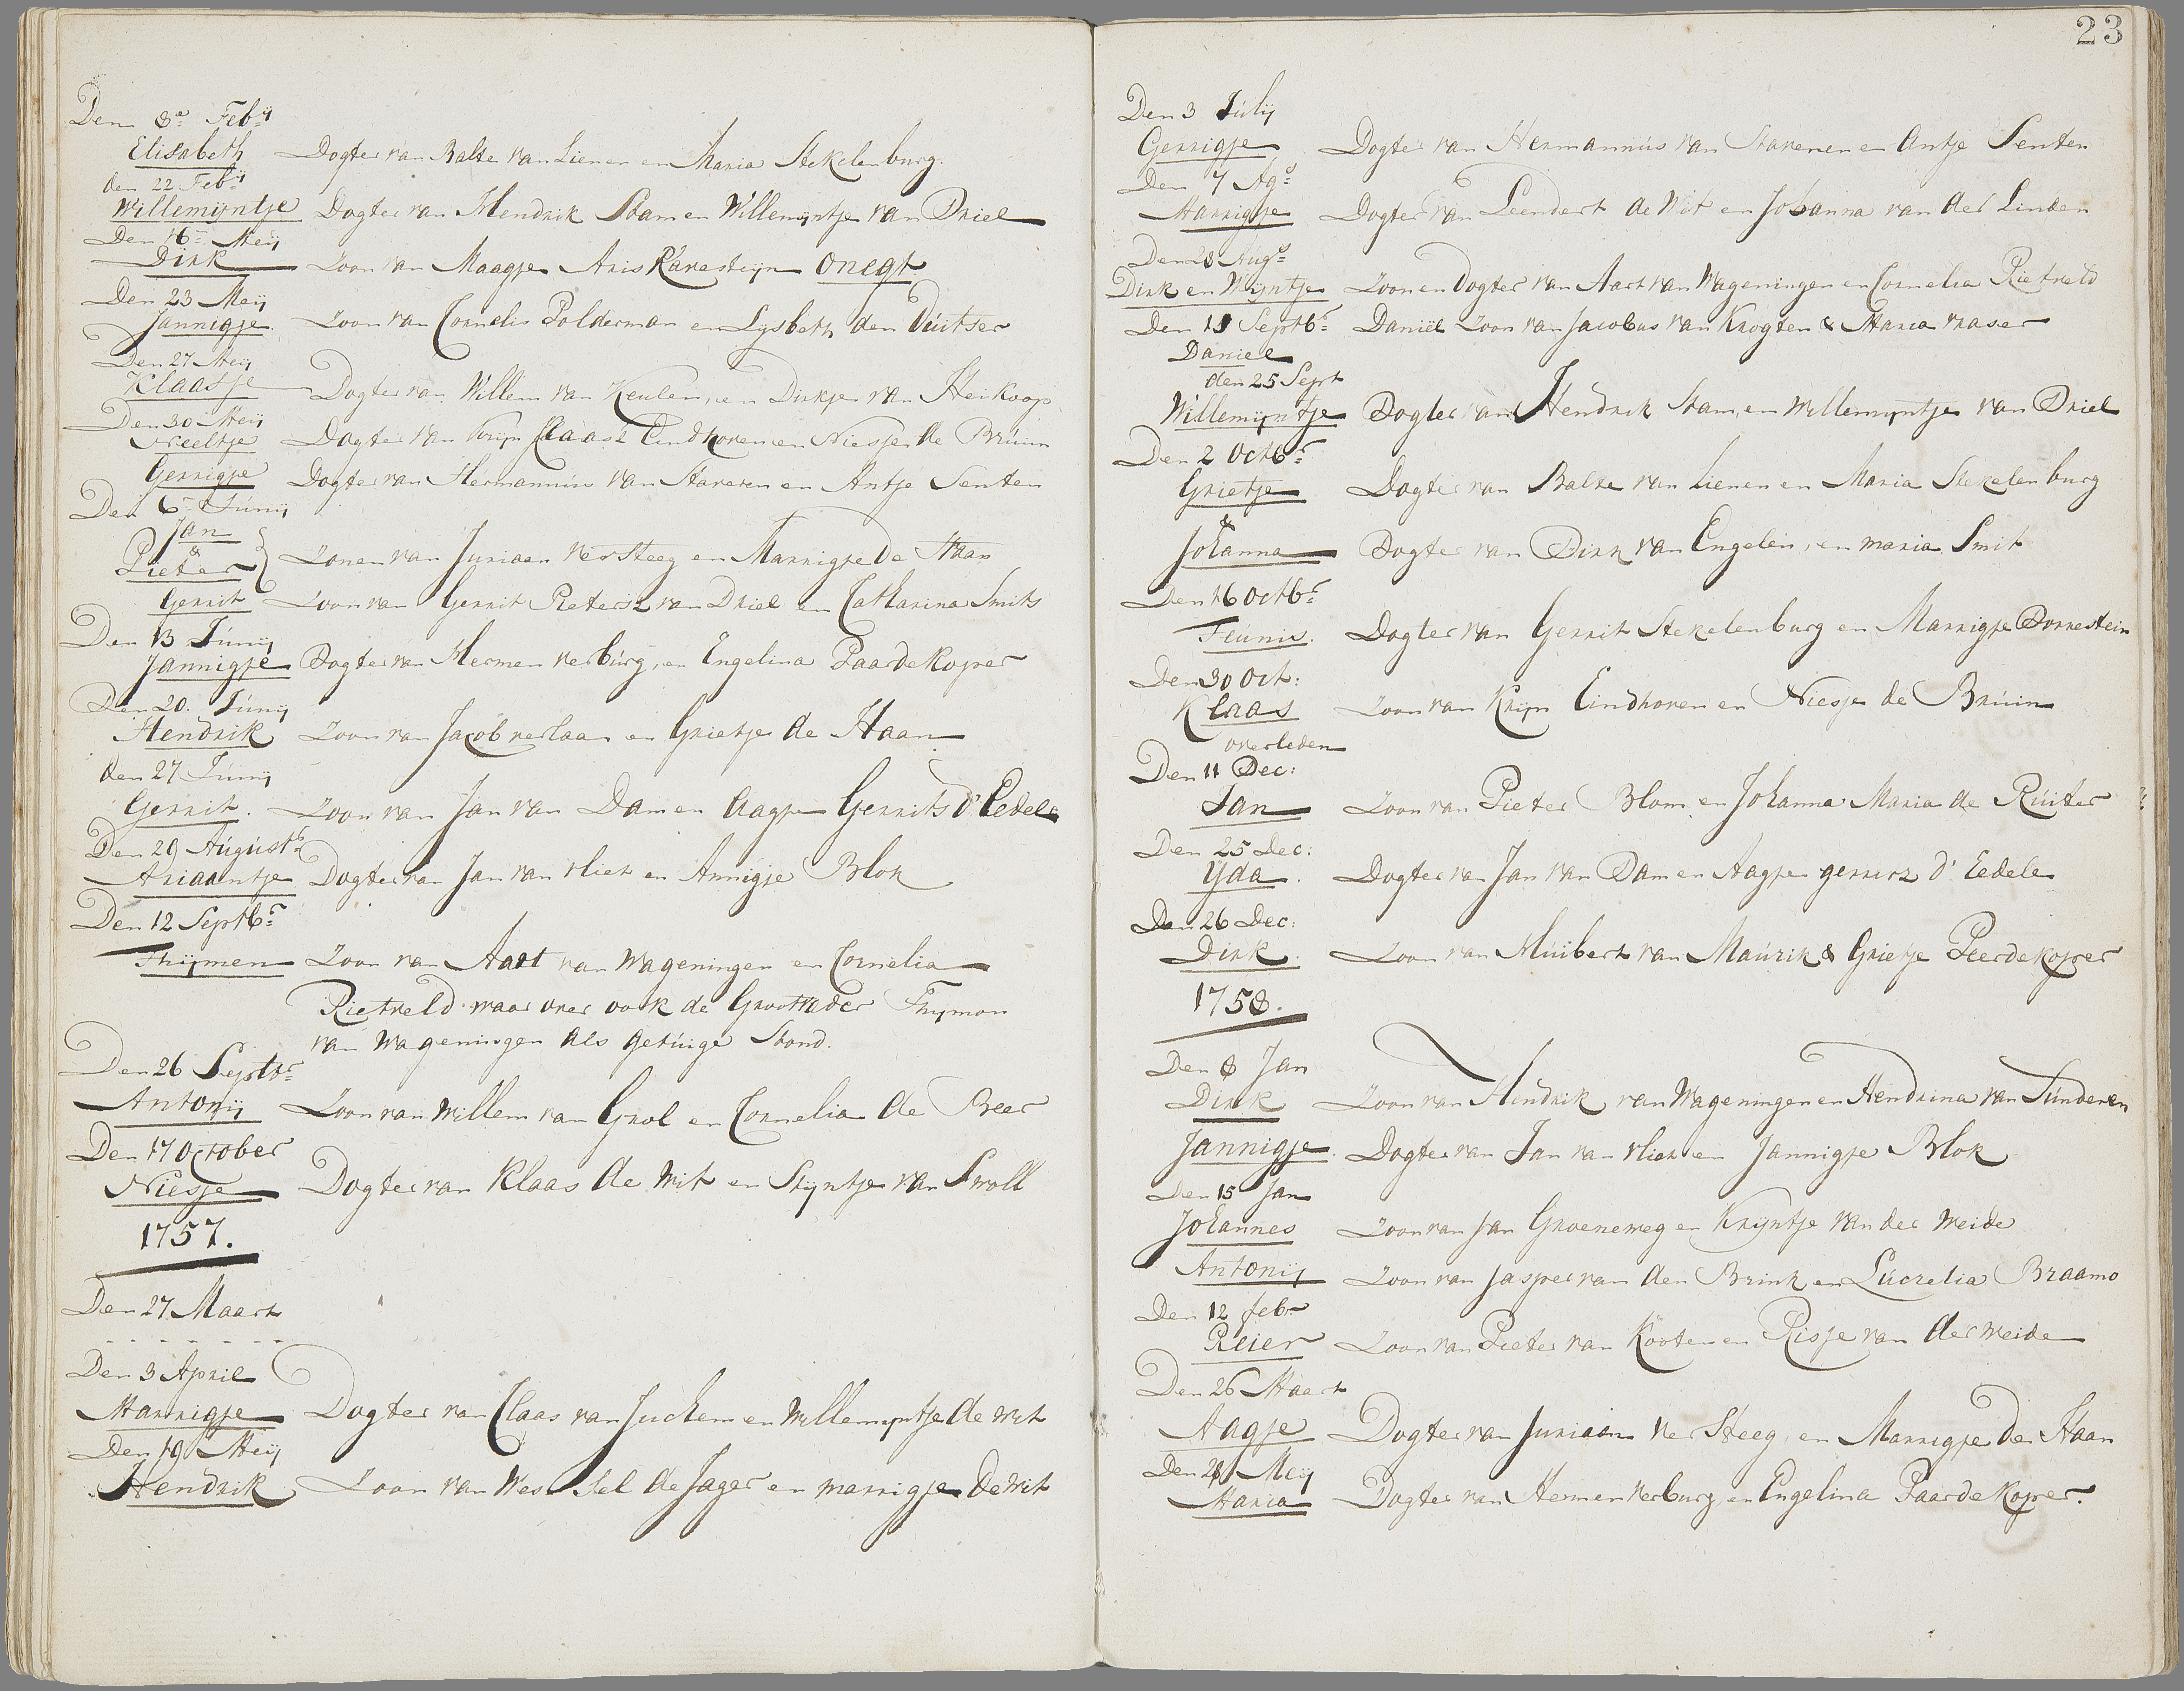 Den 8e Feby
Elisabeth Dogter van Balte van Lienen en Maria Stekelenburg.
den 22 Feby
Willemijntje Dogter van Hendrik Stam en Willemijntje van Driel
Den 16 Meij
Dirk Zoon van Maagje Aris Ravesteijn onegt
Den 23 Meij
Jannigje Zoon van Cornelis Polderman en Lysbeth den Duitser
Den 27 Meij
Klaasje Dogter van Willem van Keulen, en Dirkje van Heikoop
Den 30 Meij
Neeltje Dogter van Krijn Klaasz Eindhoven en Niesje de Brúin
Gerrigje Dogter van Hermannus van Staveren en Antje Senten
Den 6 Júnij
Jan
&
Pieter } Zonen van Juriaan Versteeg en Marrigje De Haan
Gerrit Zoon van Gerrit Pietersz van Driel en Catharina Smits
Den 13 Júnij
Jannigje Dogter van Herman verbúrg, en Engelina Paardekoper
Den 20. Júnij
Hendrik Zoon van Jacob verlaan en Grietje de Haan
den 27 Júnij
Gerrit. Zoon van Jan van Dam en Aagje Gerrits d' Eedele
Den 29 August
Ariaantje Dogter van Jan van vliet en Annigje Blok
Den 12 Septbr
Thijmen Zoon van Aart van Wageningen en Cornelia
Rietveld waar over ook de Grootvader Thymon
van Wageningen als getúige Stond.
Den 26 Septbr
Antonij Zoon van Willem van Grol en Cornelia de Beer
Den 17 October
Niesje Dogter van Klaas de Wit en Stijntje van Swoll
1757.
Den 27 Maart
- - - - - - - -
Den 3 April
Marrigje Dogter van Claas van Juchem en Willemijntje de Wit
Den 19 Meij
Hendrik Zoon van Wessel de Jager en marrigje De Wit
23
Den 3 Júlij
Gerrigje Dogter van Hermannús van Staveren en Antje Senten
Den 7 Ags
Marrigje Dogter van Leendert de Wit en Johanna van der Linden
Den 28 Augs
Dirk en Wijntje Zoon en Dogter van Aart van Wageningen en Cornelia Rietveld
Den 11 Septbr Daniël Zoon van Jacobus van Krogten & Maria vaser
Daniel
den 25 Sept
Willemijntje Dogter van Hendrik Stam, en Willemijntje van Driel
Den 2 Octbr
Grietje Dogter van Balte van Lienen en Maria Stekelenburg
&
Johanna Dogter van Dirk van Engelen, en maria Smit
Den 16 Octbr
Teúnis. Dogter van Gerrit Stekelenburg en Marrigje Dornestein
Den 30 Oct:
Klaas Zoon van Krijn Eindhoven en Niesje de Brúin
overleden
Den 11 Dec:
Jan Zoon van Pieter Blom, en Johanna Maria de Rúiter
Den 25 Dec:
Yda. Dogter van Jan van Dam en Aagje gerritz d' Eedele
Den 26 Dec:
Dirk. Zoon van Húibert van Maúrik & Grietje Peerdekoper
1758.
Den 8 Jan
Dirk Zoon van Hendrik van Wageningen en Hendrina van Súnderen
Jannigje. Dogter van Jan van vliet en Jannigje Blok
Den 15 Jan
Johannes Zoon van Jan Groeneweg en Krijntje van der Weide
Antonij Zoon van Jasper van den Brink en Lúcretia Braamo
Den 12 febr
Reier Zoon van Pieter van Kooten en Risje van der Weide
Den 26 Maart
Aagje Dogter van Juriaan Ver Steeg, en Marrigje de Haan
Den 28 Meij
Maria Dogter van Hermen Verburg, en Engelina Paardekoper.